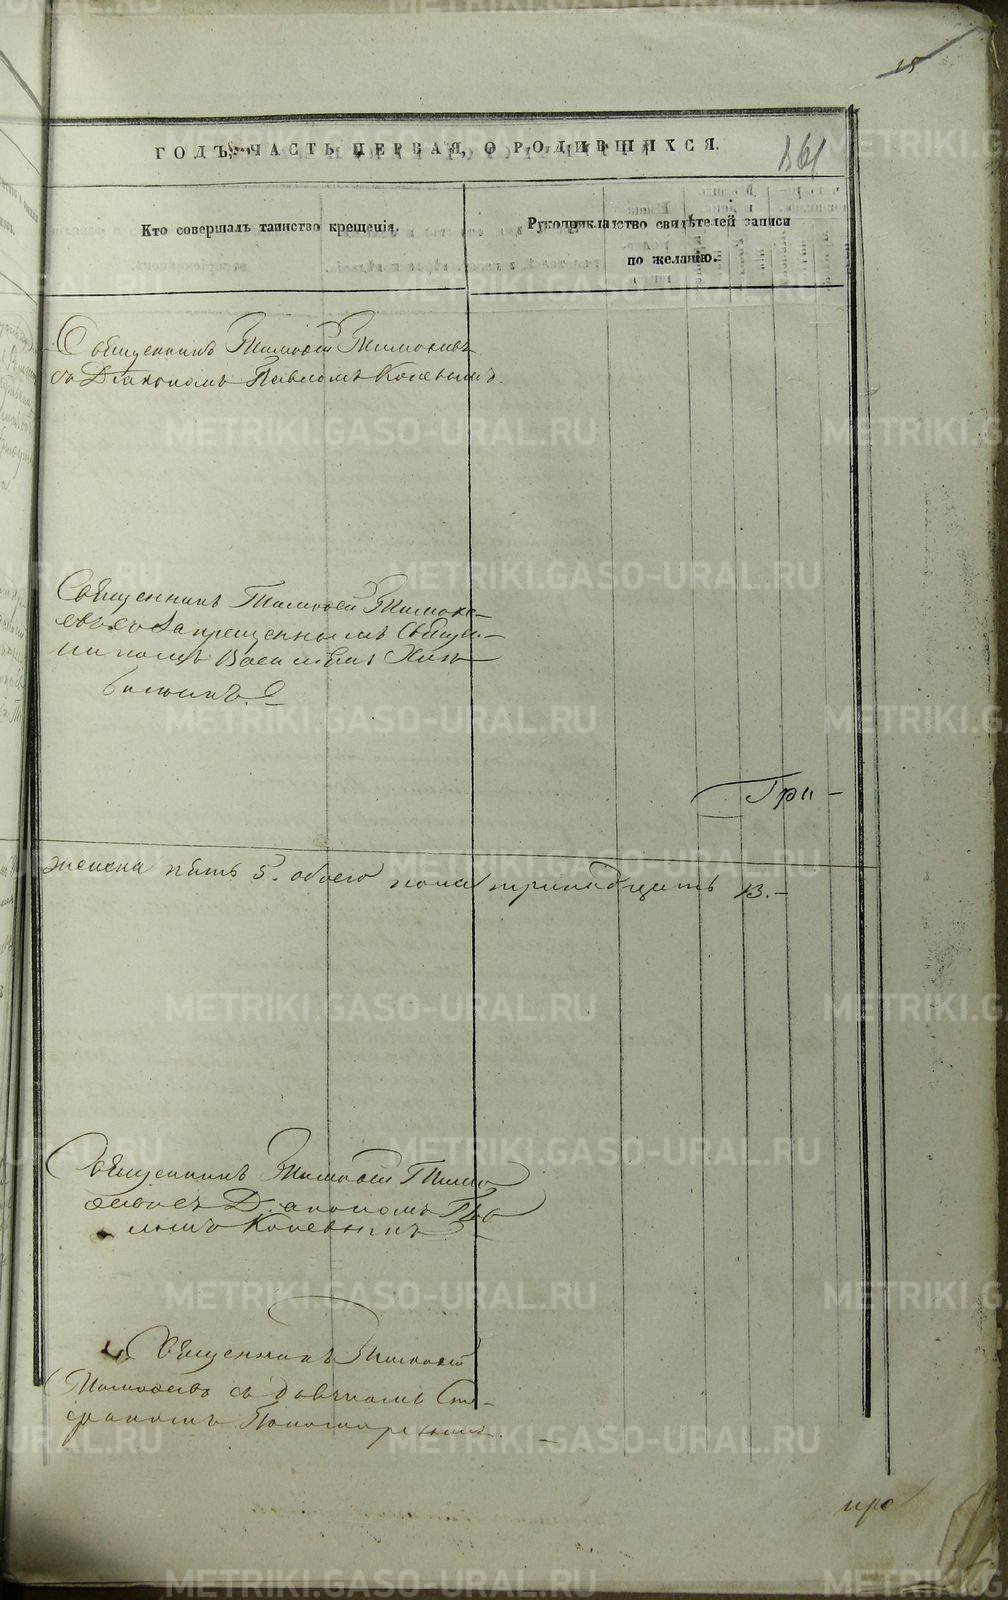 15
ГОДЪ, ЧАСТЬ ПЕРВАЯ, О РОДИВШИХСЯ.
161
Кто совершалъ таинство крещенія.
Рукоприкладство свидѣтелей записи
по желанію.
Священникъ Тимофей Тимофеевъ
съ Діакономъ Павломъ Коневымъ.
Священникъ Тимофей Тимофе-
евъ съ Запрещеннымъ Священ-
никомъ Василіемъ
Три-
женска пять 5. обоего пола тринадцать 13.-
Священникъ Тимофей Тимо
феевъ съ Діакономъ Пав
ломъ Коневымъ
Священникъ Тимофей
Тимофеевъ съ Дьячкомъ Сте-
фаномъ Пономаревымъ.
METRIKI.GASO-URAL.RU